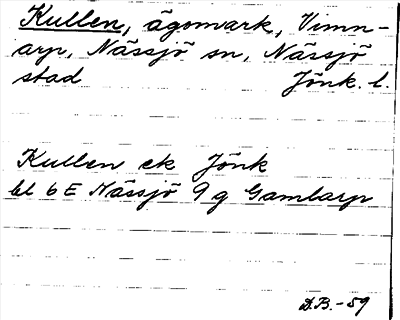 Kullen, ägomark, Vimn-
arp, Nässjö sn, Nässjö
stad Jönk. l.
Kullen ek Jönk
bl 6E Nässjö 9 g Gamlarp
D.B.-59